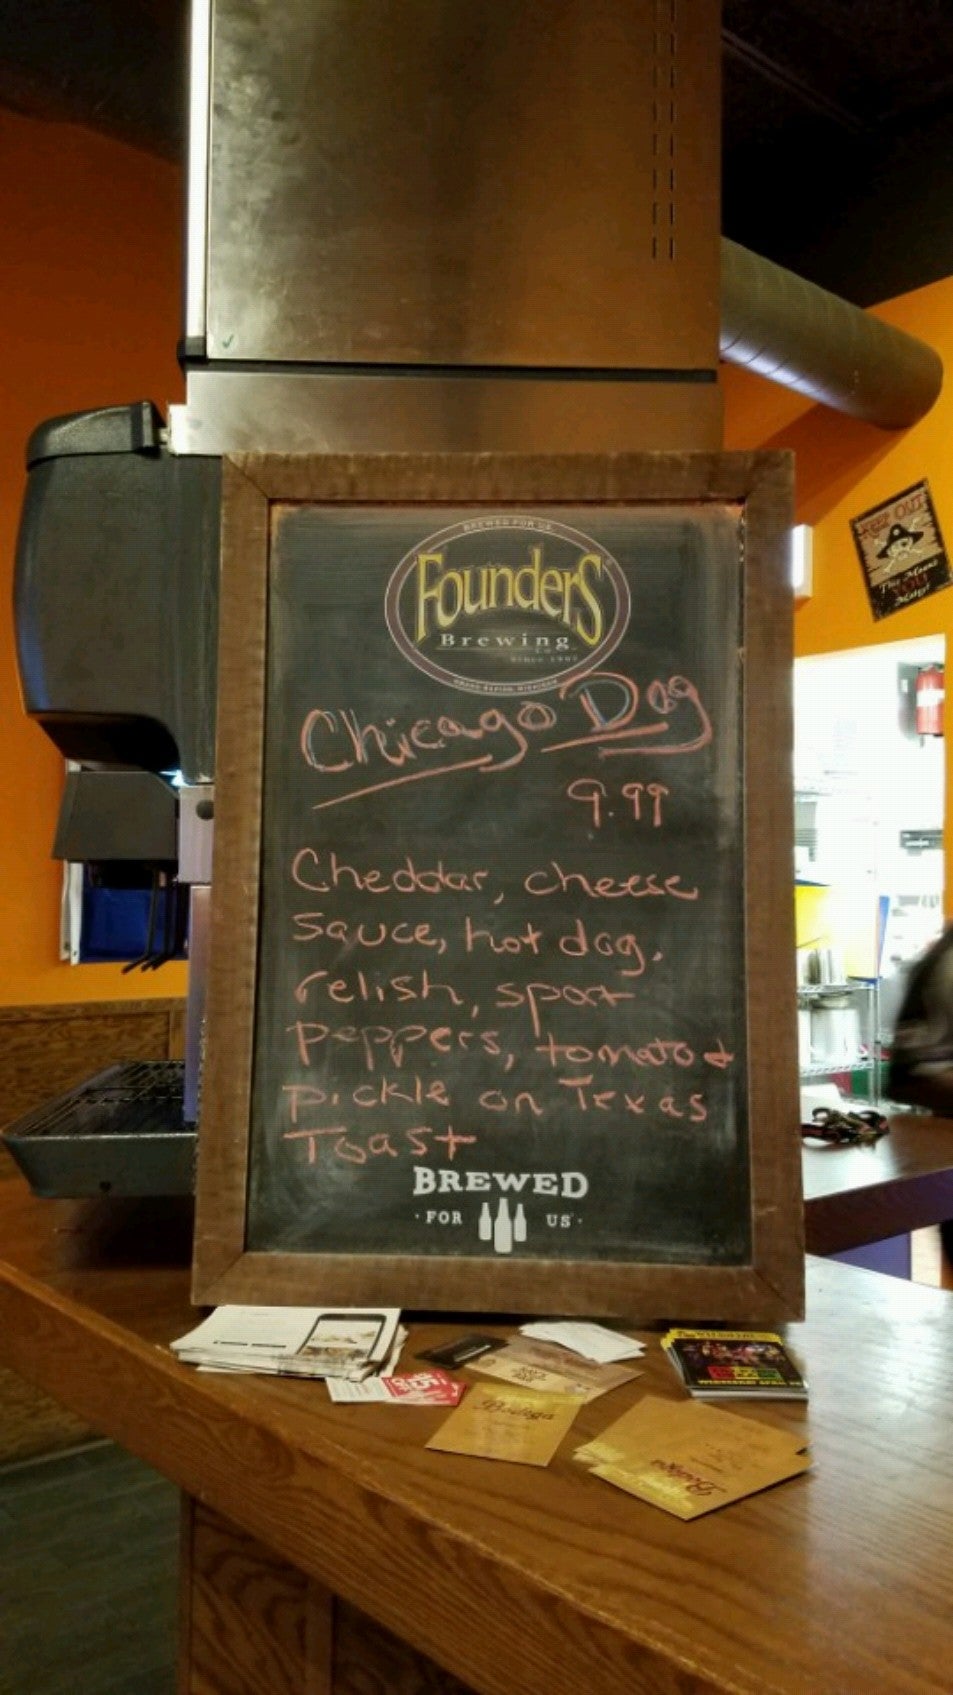 BREWED FOR US
Founders
Brewing
Co
SINCE 1997
GRAND RAPIDS, MICHIGAN
Chicago Dog
9.99
Cheddar, cheese
sauce, hot dog,
relish, sport
peppers, tomato &
pickle on Texas
Toast
BREWED
· FOR US ·
KEEP OUT
This Means
YOU
Matey!
Bodega
Bodega